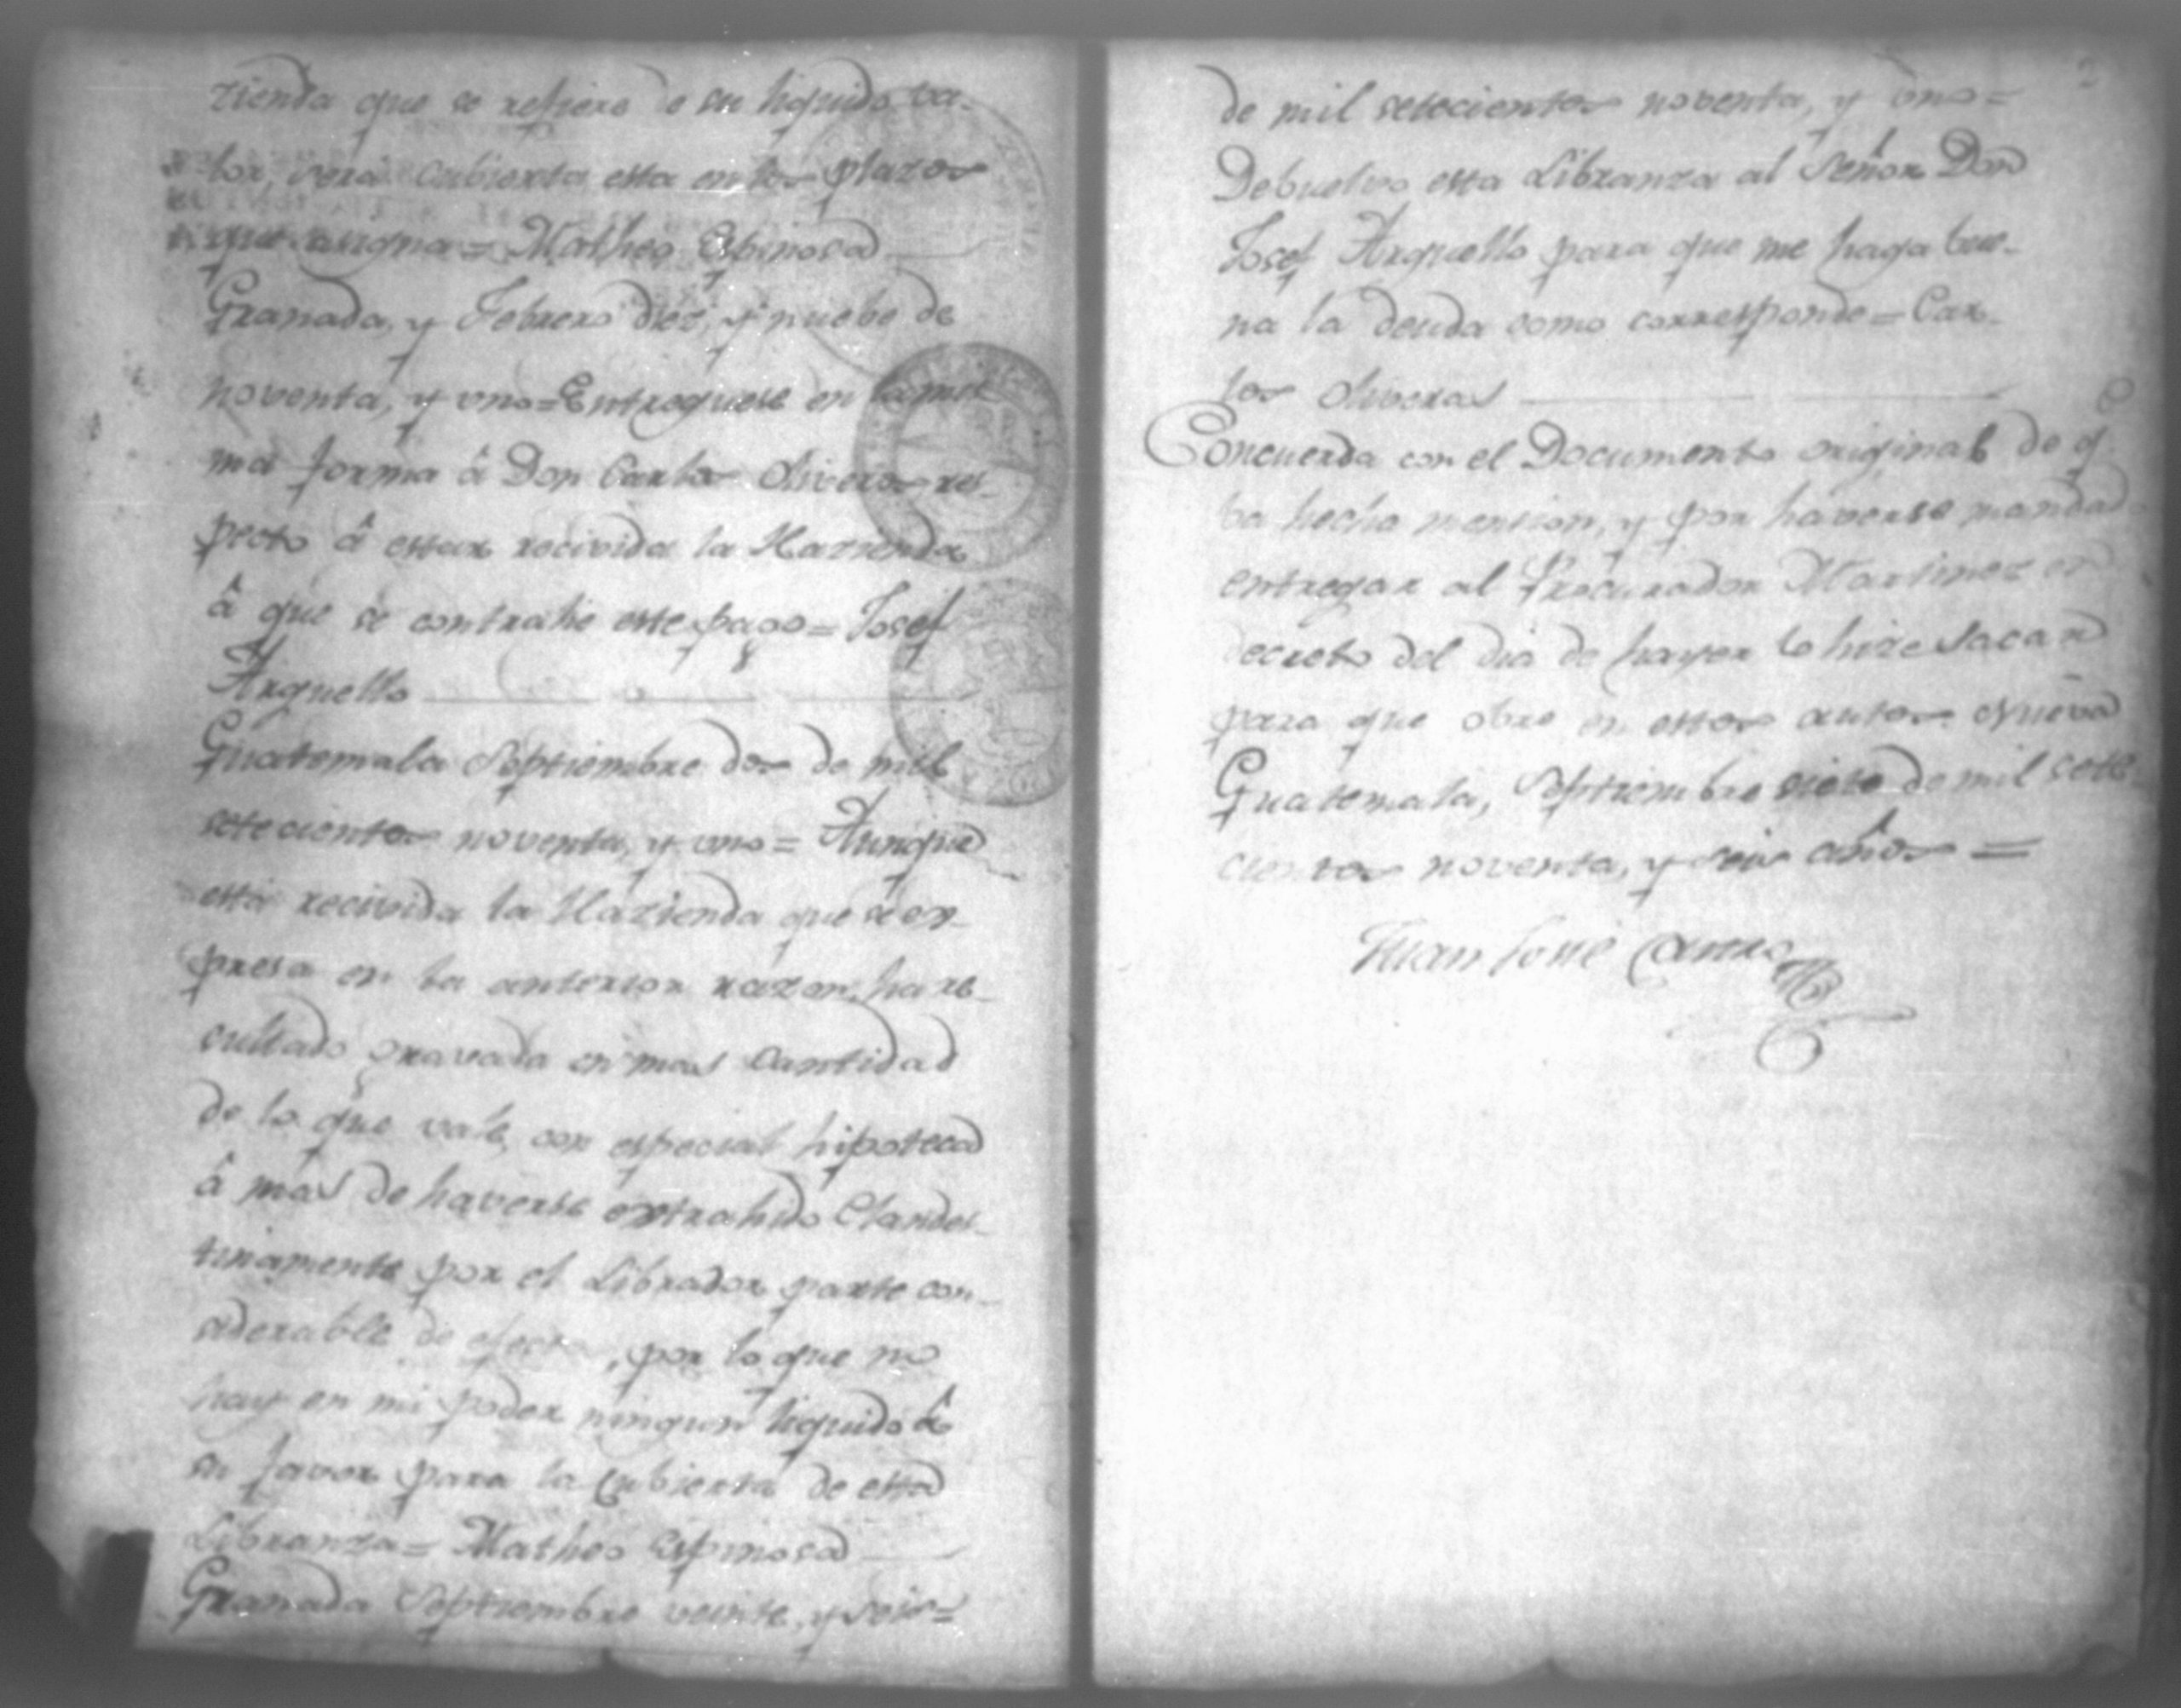 zienda que se refiere o su liquido va-
lor, será cubierta esta en los plazos
que asigna = Matheo Espinosa
Granada, y Febrero diez, y nuebe de
noventa, y uno = Entreguese en la mis
ma forma â Don Carlos Oliveras, res-
pecto â estar recivida la Hazienda
â que se contrahe este pago = Josef
Arguello
Guatemala Septiembre dos de mil
setecientos noventa, y uno = Aunque
está recivida la Hazienda que se ex-
presa en la anterior razon, ha re-
cultado gravada en mas cantidad
de lo que vale, con especial hipoteca
â mas de haverse extrahido Clandes-
tinamente por el Librador parte con-
siderable de efectos, por lo que no
hay en mi poder ningun liquido â
su favor para la cubierta de esta
Libranza = Matheo Espinosa
Granada Septiembre veinte, y seis =
2
de mil setecientos noventa, y uno =
Debuelvo esta Libranza al Señor Don
Josef Arguello para que me haga bue-
na la deuda como corresponde = Car-
los Oliveras
Concuerda con el Documento original de q.e
va hecha mension, y por haverse mandado
entregar al Procurador Martinez en
decreto del dia de hayer lo hize sacar
para que obre en estos autos. Nueva
Guatemala, Septiembre siete de mil sete-
cientos noventa, y seis años =
Juan José